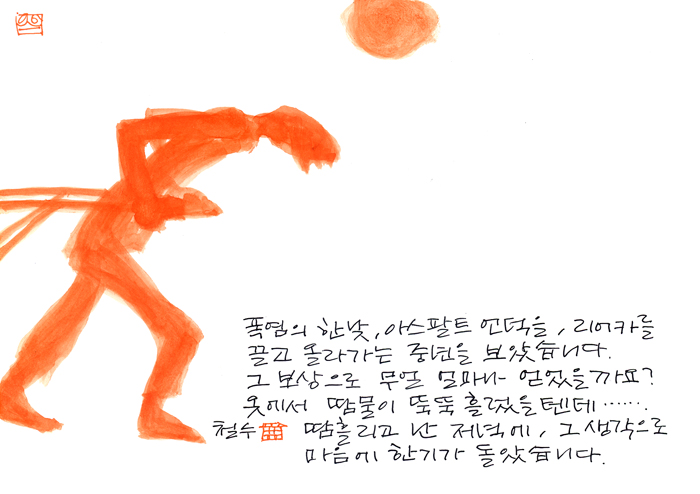 폭염의 한낮, 아스팔트 언덕을, 리어카를
끌고 올라가는 중년을 보았습니다.
그 보상으로 무얼 얼마나 얻었을까요?
옷에서 땀물이 뚝뚝 흘렀을텐데 ......
철수 땀흘리고 난 저녁에, 그 생각으로
마음에 한기가 돌았습니다.